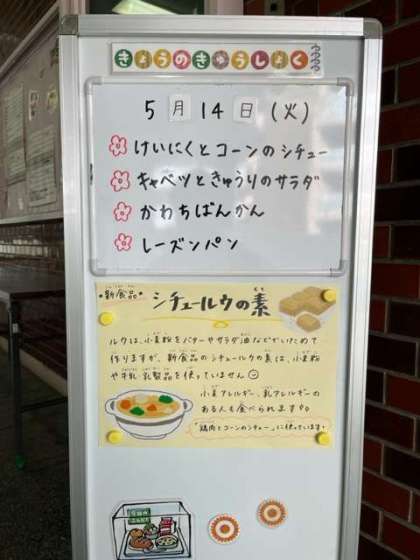 きょうのきゅうしょく
5月14日(火)
けいにくとコーンのシチュー
キャベツときゅうりのサラダ
かわちばんかん
レーズンパン
新食品 シチュールウの素
ルウは、小麦粉をバターやサラダ油などでいためて
作りますが、新食品のシチュールウの素は、小麦粉
や牛乳・乳製品を使っていません
小麦アレルギー、乳アレルギーの
ある人も食べられます
「鶏肉とコーンのシチュー」に使っています